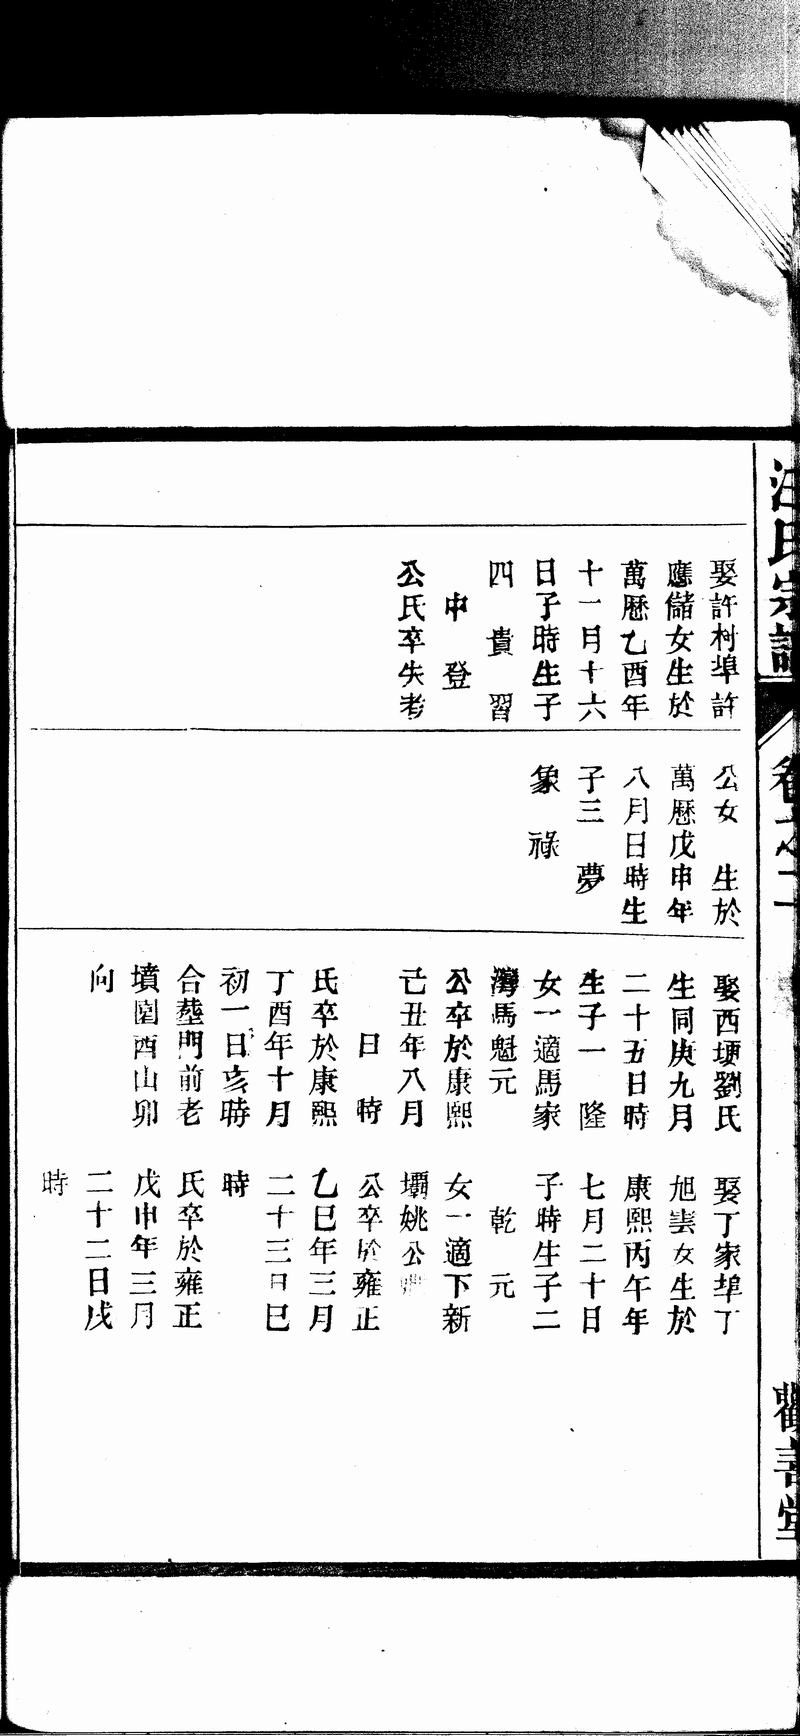 汪氏宗譜
卷之二
觀善堂
娶許村埠許
應儲女生於
萬曆乙酉年
十一月十六
日子時生子
四　貴　習
申　登
公氏卒失考
公女　生於
萬曆戊申年
八月日時生
子三　夢
象　祿
娶西埂劉氏
生同庚九月
二十五日時
生子一　隆
女一適馬家
灣馬魁元
公卒於康熙
己丑年八月
日　時
氏卒於康熙
丁酉年十月
初一日亥時
合塟門前老
墳園酉山卯
向
娶丁家埠丁
旭雲女生於
康熙丙午年
七月二十日
子時生子二
乾　元
女一適下新
壩姚公
公卒於雍正
乙巳年三月
二十三日巳
時
氏卒於雍正
戊申年三月
二十二日戌
時